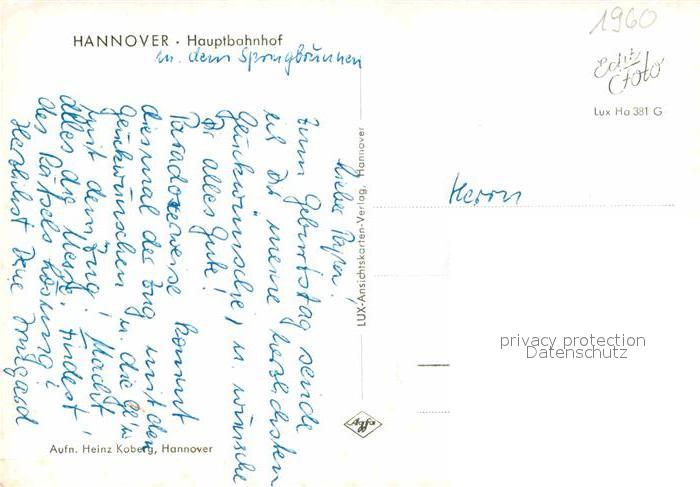 HANNOVER · Hauptbahnhof
m. dem Springbrunnen
1960
Echte Foto
Lux Ha 381 G
Lieber Papa!
Zum Geburtstag sende
ich Dir meine herzlichsten
Glückwünsche, u. wünsche
Dir alles Gute!
Paradoxerweise kommt
diesmal der Zug mit den
Glückwünschen u. die
mit dem Zug! Macht
alles die Messe! Findest
des Rätsels Lösung!
Herzlichst Deine Irmgard
LUX-Ansichtskarten-Verlag, Hannover
Herrn
privacy protection
Datenschutz
Agfa
Aufn. Heinz Koberg, Hannover